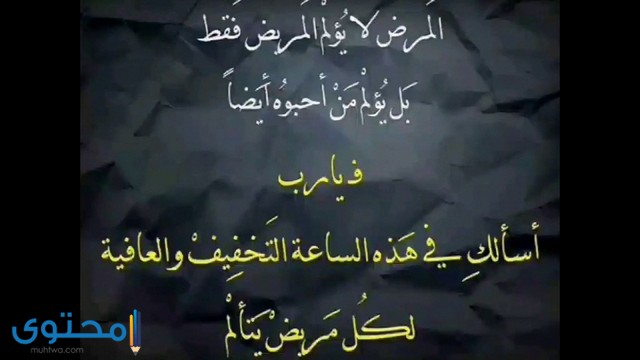 المَرض لا يُؤلمْ المَريض فَقط
بَل يُؤلمْ مَنْ أحبوُه أيَضاً
فـ يا رب
أسألكِ في هَذه الساعة التَخفِيفْ والعافية
لكُل مَريضْ يَتألمْ
محتوى
muhtwa.com